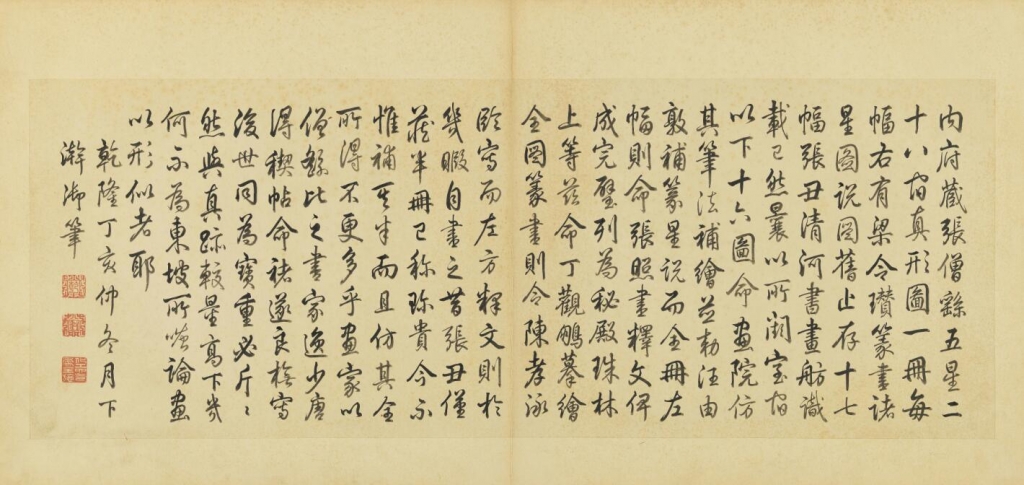 內府藏張僧繇五星二
十八宿真形圖一冊每
幅右有梁令瓚篆書諸
星圖說圖舊止存十七
幅張丑清河書畫舫識
載已然曩以所闕室宿
以下十六圖命畫院仿
其筆法補繪並勅汪由
敦補篆星說而全冊左
幅則命張照書釋文俾
成完璧列為秘殿珠林
上等茲命丁觀鵬摹繪
全圖篆書則令陳孝泳
臨寫而左方釋文則於
幾暇自書之昔張丑僅
藏半冊已称珎貴今不
惟補其半而且仿其全
所得不更多乎畫家以
僧繇比之書家逸少唐
得稧帖命褚遂良橅寫
後世同為寶重必斤〻
然與真跡較量高下幾
何不為東坡所嗤論畫
以形似者耶
乾隆丁亥仲冬月下
澣御筆